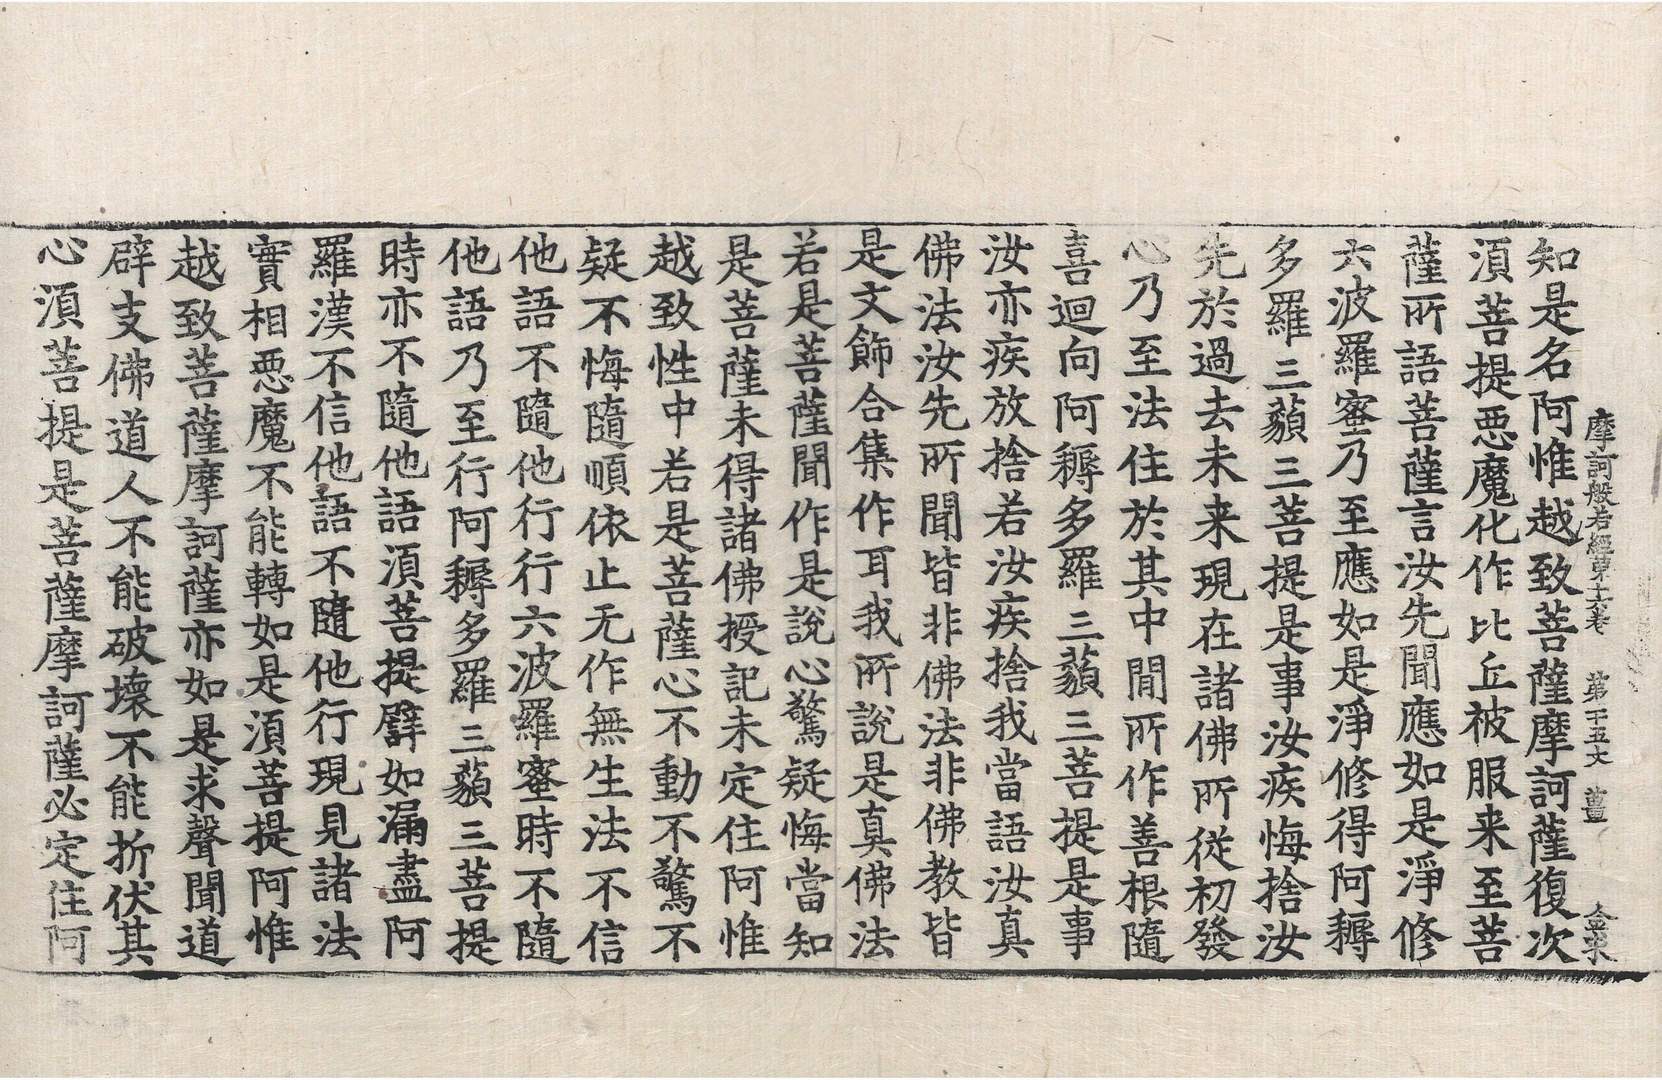 摩訶般若經第十六卷　第十五丈　薑　金求
知是名阿惟越致菩薩摩訶薩復次
須菩提悪魔化作比丘被服来至菩
薩所語菩薩言汝先聞應如是淨修
六波羅蜜乃至應如是淨修得阿耨
多羅三藐三菩提是事汝疾悔捨汝
先於過去未来現在諸佛所従初發
心乃至法住於其中閒所作善根隨
喜迴向阿耨多羅三藐三菩提是事
汝亦疾放捨若汝疾捨我當語汝真
佛法汝先所聞皆非佛法非佛教皆
是文飾合集作耳我所說是真佛法
若是菩薩聞作是說心驚疑悔當知
是菩薩未得諸佛授記未定住阿惟
越致性中若是菩薩心不動不驚不
疑不悔隨順依止无作無生法不信
他語不隨他行行六波羅蜜時不隨
他語乃至行阿耨多羅三藐三菩提
時亦不隨他語須菩提譬如漏盡阿
羅漢不信他語不隨他行現見諸法
實相悪魔不能轉如是須菩提阿惟
越致菩薩摩訶薩亦如是求聲聞道
辟支佛道人不能破壞不能折伏其
心須菩提是菩薩摩訶薩必定住阿